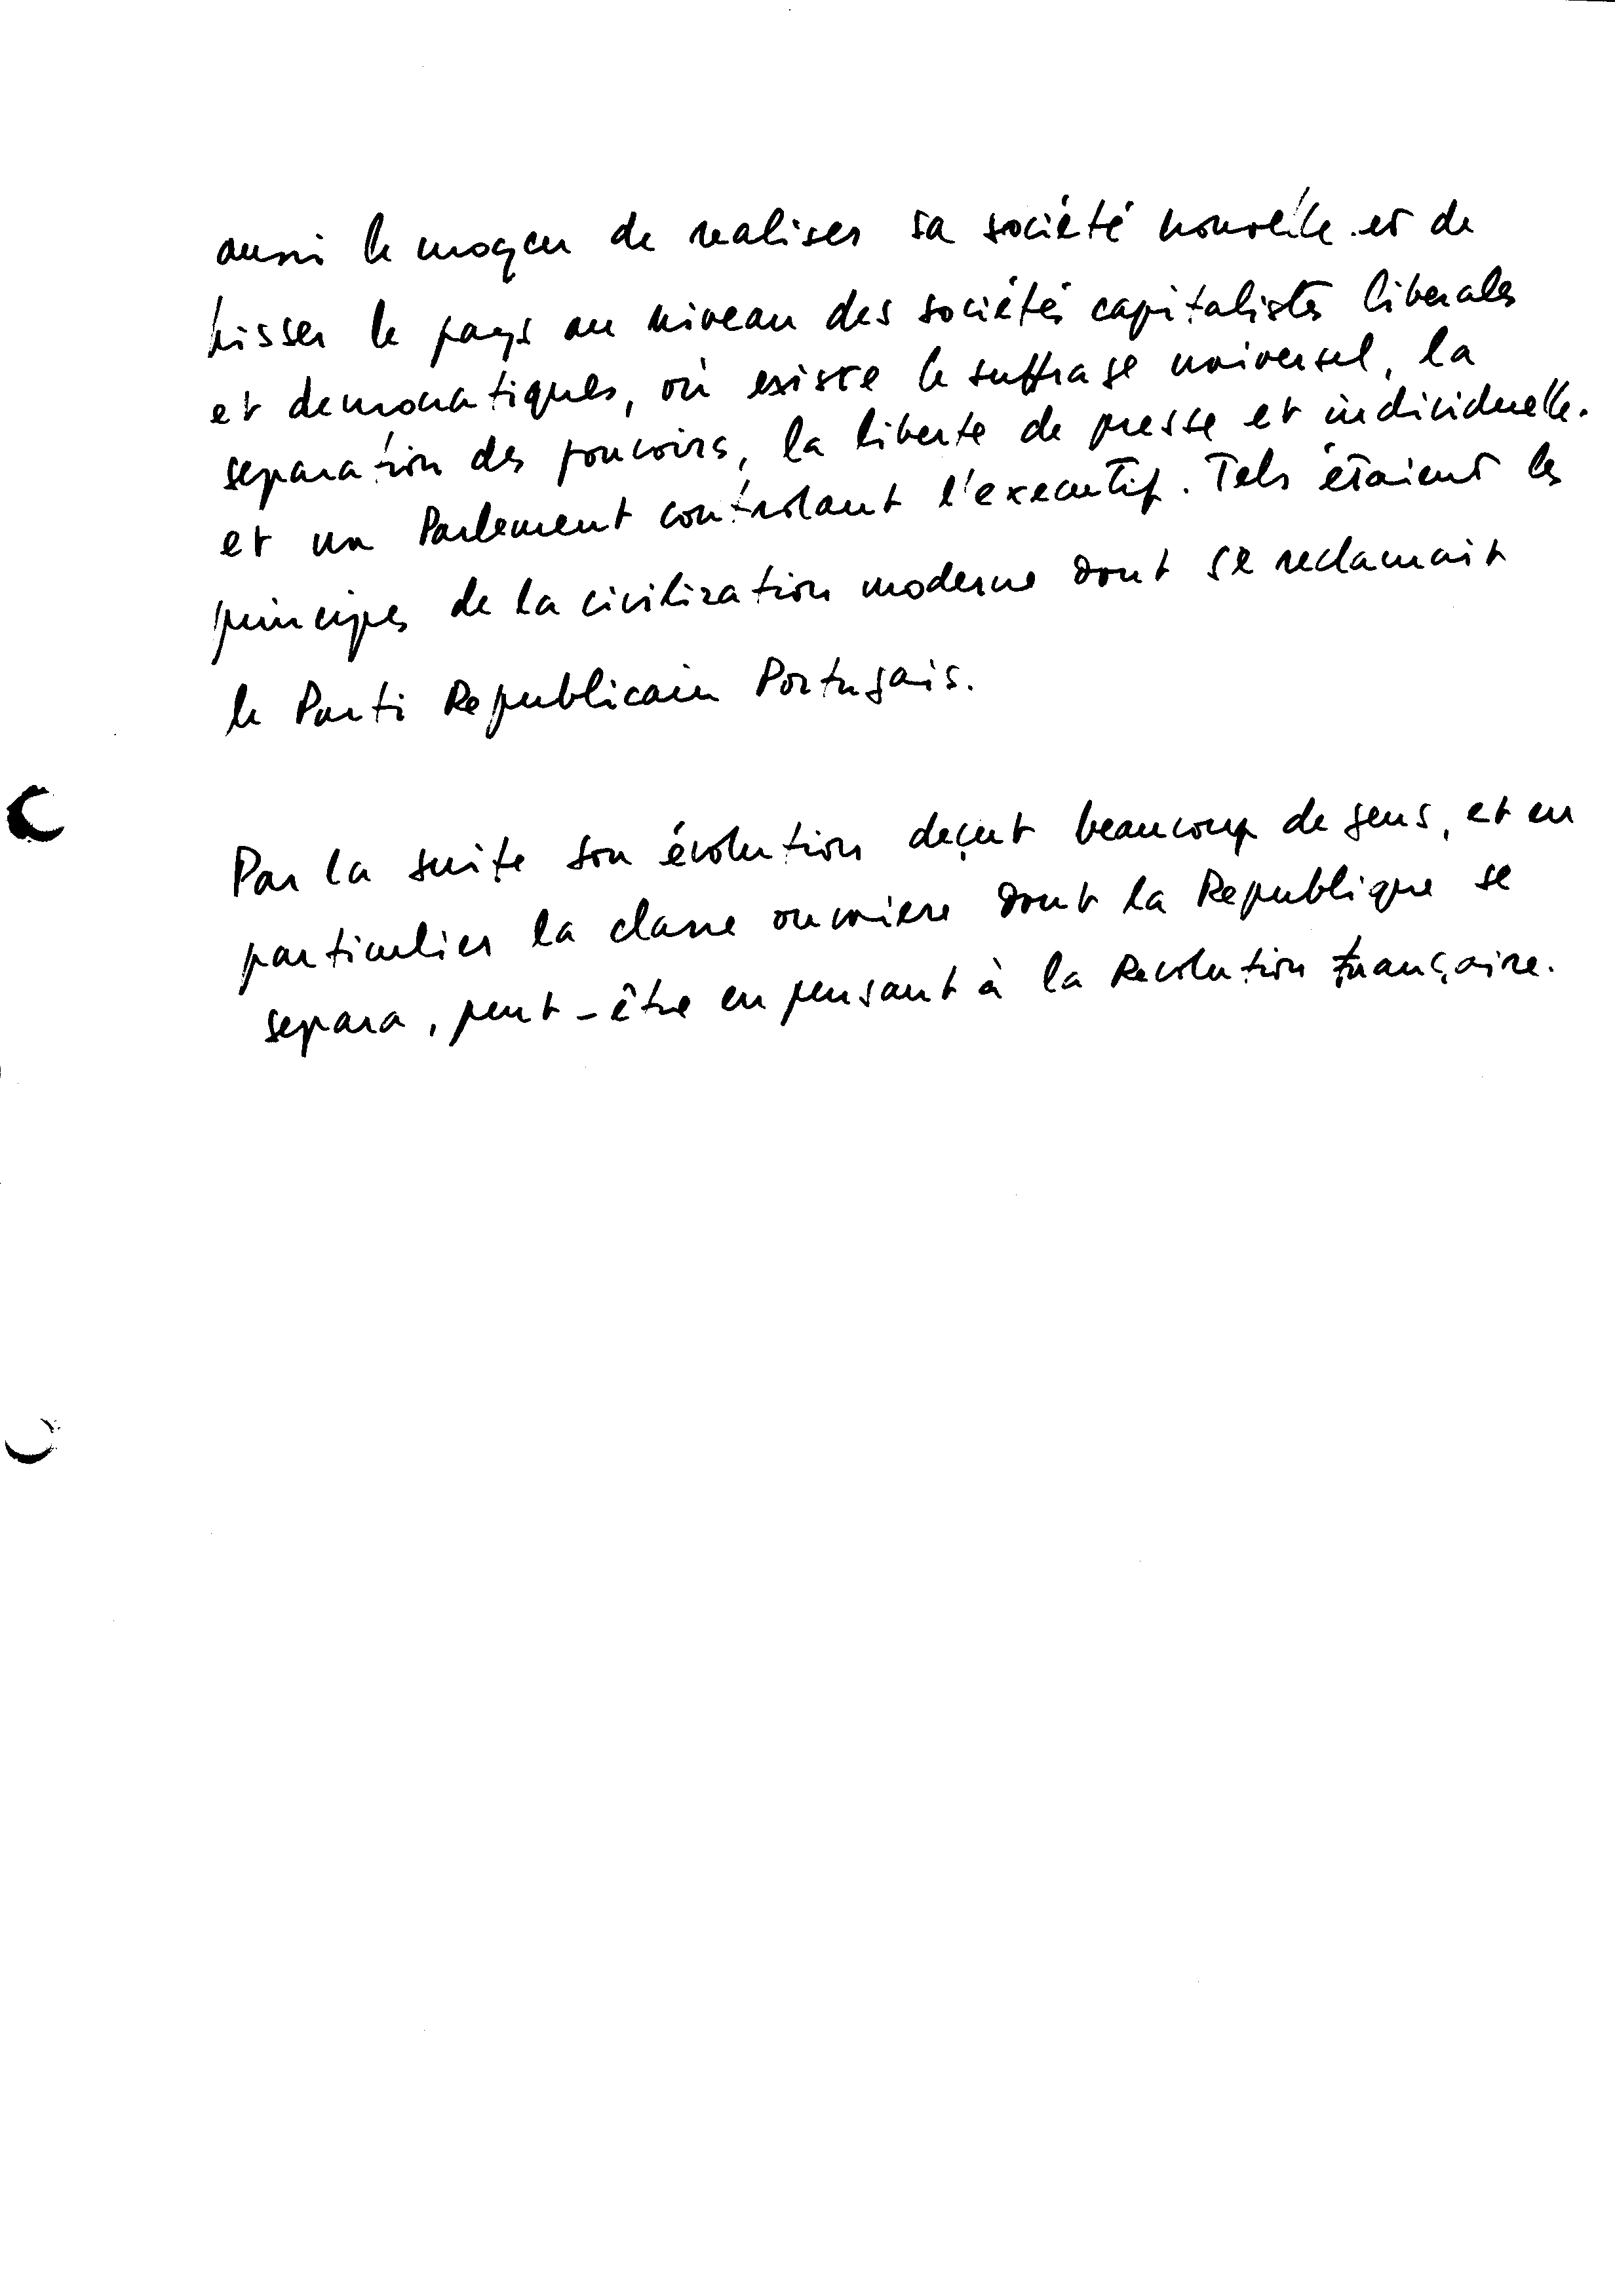 aussi le moyen de realiser sa société nouvelle et de
hisser le pays au niveau des sociétés capitalistes liberales
et democratiques, où existe le suffrage universel, la
separation des pouvoirs, la liberte de presse et individuelle.
et un Parlement contrôlant l'executif. Tels étaient les
principes de la civilization moderne dont se reclamait
le Parti Republicain Portugais.
Par la suite son évolution deçut beaucoup de gens, et en
particulier la classe ouvriere dont la Republique se
separa, peut-être en pensant à la Revolution Française.